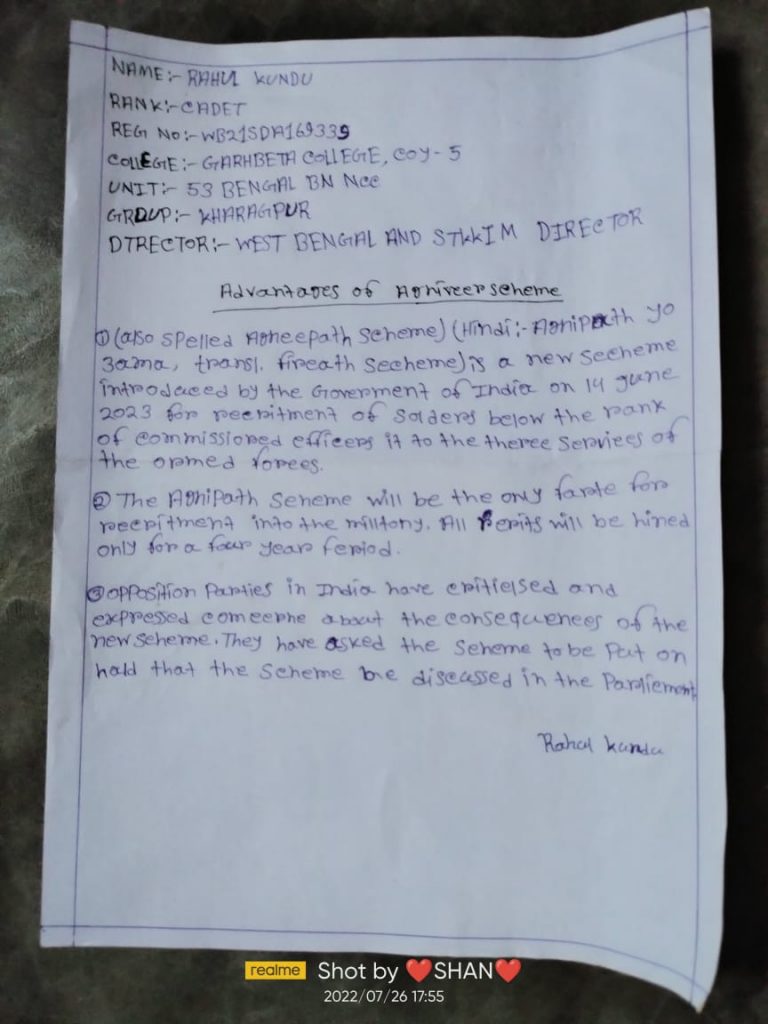 NAME:- RAHUL KUNDU
RANK:- CADET
REG NO:- WB21SDA169339
COLLEGE:- GARHBETA COLLEGE, COY-5
UNIT:- 53 BENGAL BN NCC
GROUP:- KHARAGPUR
DTRECTOR:- WEST BENGAL AND STKKIM DIRECTOR
Advantages of Agniveer scheme
① (also spelled Agneepath scheme) (Hindi:- Agnipath yo
Jama, transl. fireath Secheme) is a new Secheme
introduced by the Goverment of India on 14 june
2023 for recritment of solders below the rank
of commissioned officers it to the theree serviees of
the ormed forees.
② The Agnipath Seheme will be the only farte for
recritment into the militony. All will be hired
only for a four year feriod.
③ opposition Parties in India have critielsed and
expressed comeerne about the consequences of the
new scheme. They have asked the Seheme to be Put on
hald that the Scheme be diseassed in the Parliement
Rahul kundu
realme Shot by ❤️SHAN❤️
2022/07/26 17:55